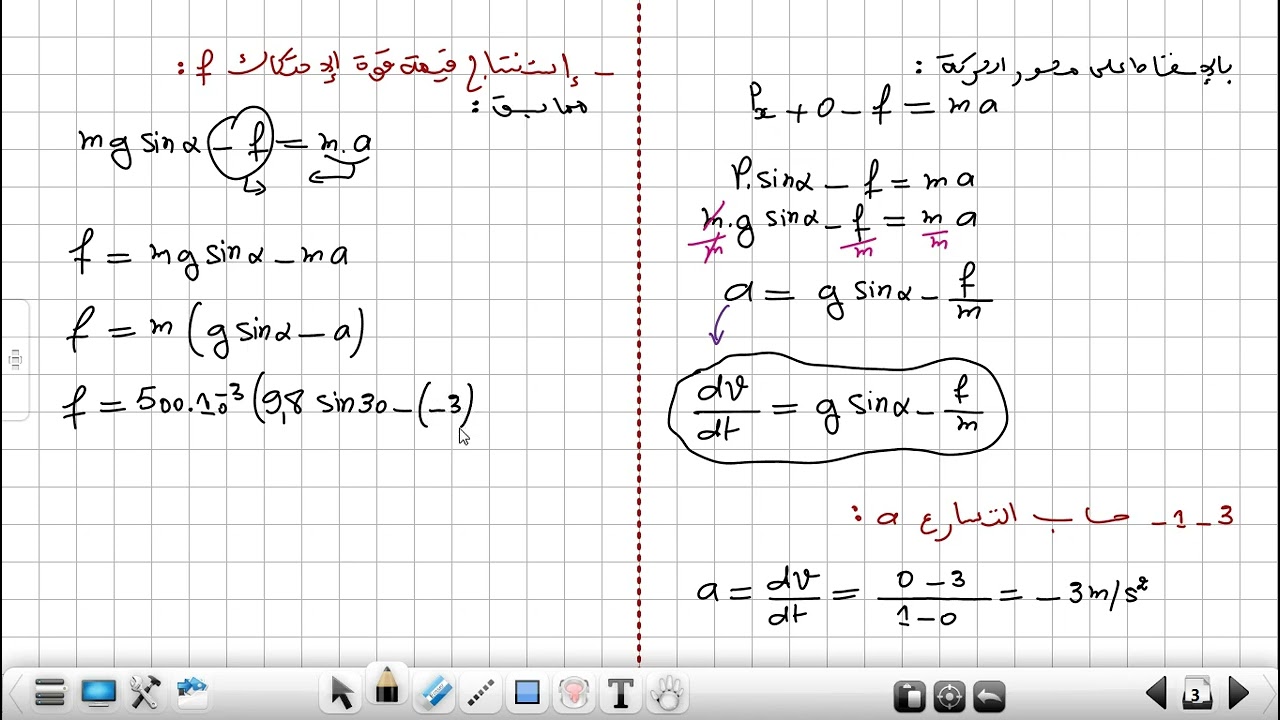 بالإسقاط على محور الحركة :
Px + 0 - f = m a
P. sinα - f = m a
m.g sinα / m - f / m = m a / m
a = g sinα - f/m
dv/dt = g sinα - f/m
3 - 1 - حساب التسارع a :
a = dv/dt = (0 - 3)/(1 - 0) = - 3 m/s²
- إستنتاج قيمة قوة الإحتكاك f :
مما سبق :
m g sinα - f = m. a
f = m g sinα - m a
f = m (g sinα - a)
f = 500.10⁻³ (9,8 sin30 - (-3)
3